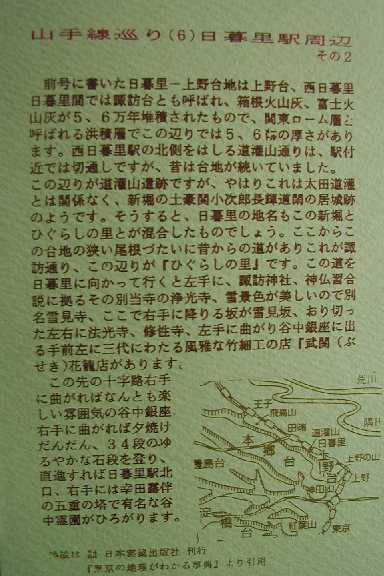 山手線巡り(6)日暮里駅周辺
その2
前号に書いた日暮里－上野台地は上野台、西日暮里
日暮里間では諏訪台とも呼ばれ、箱根火山灰、富士火
山灰が5、6万年堆積されたもので、関東ローム層と
呼ばれる洪積層でこの辺りでは5、6㍍の厚さがあり
ます。西日暮里駅の北側をはしる道灌山通りは、駅付
近では切通しですが、昔は台地が続いていました。
この辺りが道灌山遺跡ですが、やはりこれは太田道灌
とは関係なく、新堀の土豪関小次郎長輝道閑の居城跡
のようです。そうすると、日暮里の地名もこの新堀と
ひぐらしの里とが混合したものでしょう。ここからこ
の台地の狭い尾根づたいに昔からの道がありこれが諏
訪通り、この辺りが『ひぐらしの里』です。この道を
日暮里に向かって行くと左手に、諏訪神社、神仏習合
説に拠るその別当寺の浄光寺、雪景色が美しいので別
名雪見寺、ここで右手に降りる坂が雪見坂、おり切っ
た左右に法光寺、修性寺、左手に曲がり谷中銀座に出
る手前左に三代にわたる風雅な竹細工の店『武関（ぶ
せき）花籠店があります。
この先の十字路右手
に曲がればなんとも楽
しい雰囲気の谷中銀座
右手に曲がれば夕焼け
だんだん、34段のゆ
るやかな石段を登り、
直進すれば日暮里駅北
口、右手には幸田露伴
の五重の塔で有名な谷
中霊園がひろがります。
荒川
王子
飛鳥山
田端
道灌山
日暮里
本郷台
上野台
上野の山
上野
豊島台
神田山
淀橋台
紅葉山
東京
日本実業出版社 刊行
『東京の地理がわかる事典』より引用